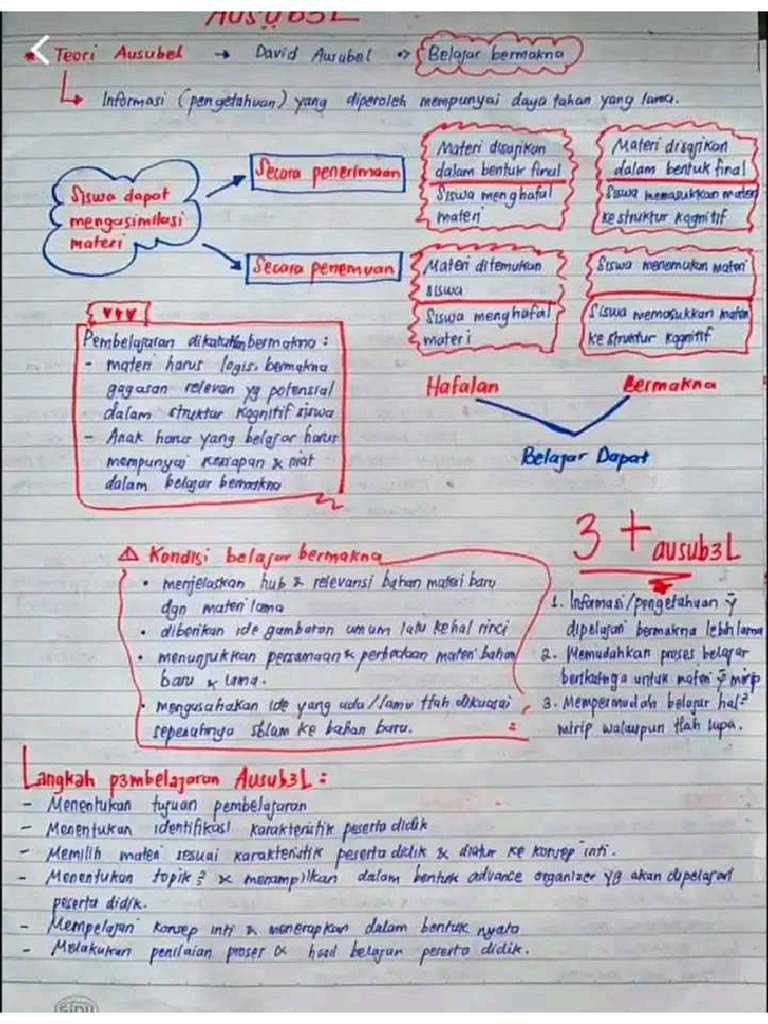 AUSUB3L
* Teori Ausubel → David Ausubel => Belajar bermakna
↳ Informasi (pengetahuan) yang diperoleh mempunyai daya tahan yang lama.
Siswa dapat
mengasimilasi
materi
Secara penerimaan
Materi disajikan
dalam bentuk final
Siswa menghafal
materi
Materi disajikan
dalam bentuk final
Siswa memasukkan materi
ke struktur kognitif
Secara penemuan
Materi ditemukan
siswa
Siswa menghafal
materi
Siswa menemukan materi
Siswa memasukkan materi
ke struktur kognitif
Hafalan
Bermakna
Belajar Dapat
Pembelajaran dikatakan bermakna :
- materi harus logis, bermakna
gagasan relevan yg potensial
dalam struktur kognitif siswa
- Anak harus yang belajar harus
mempunyai kesiapan & niat
dalam belajar bermakna
⚠ Kondisi belajar bermakna
• menjelaskan hub & relevansi bahan materi baru
dgn materi lama
• diberikan ide gambaran umum lalu ke hal rinci
• menunjukkan persamaan & perbedaan materi bahan
baru & lama.
• mengusahakan ide yang ada/lama tlah dikuasai
sepenuhnya sblum ke bahan baru.
3 + ausub3L
1. Informasi/pengetahuan ȳ
dipelajari bermakna lebih lama
2. Memudahkan proses belajar
berikutnya untuk materi ȳ mirip
3. Mempermudah belajar hal²
mirip walaupun tlah lupa.
Langkah p3mbelajaran Ausub3L :
- Menentukan tujuan pembelajaran
- Menentukan identifikasi karakteristik peserta didik
- Memilih materi sesuai karakteristik peserta didik & diatur ke konsep inti.
- Menentukan topik² & menampilkan dalam bentuk advance organizer yg akan dipelajari
peserta didik.
- Mempelajari konsep inti & menerapkan dalam bentuk nyata
- Melakukan penilaian proses & hasil belajar peserta didik.
SIDU